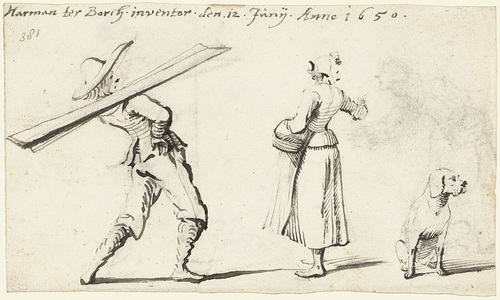 Harman ter Borch inventor. den. 12. Junij. Anno 1650.
381